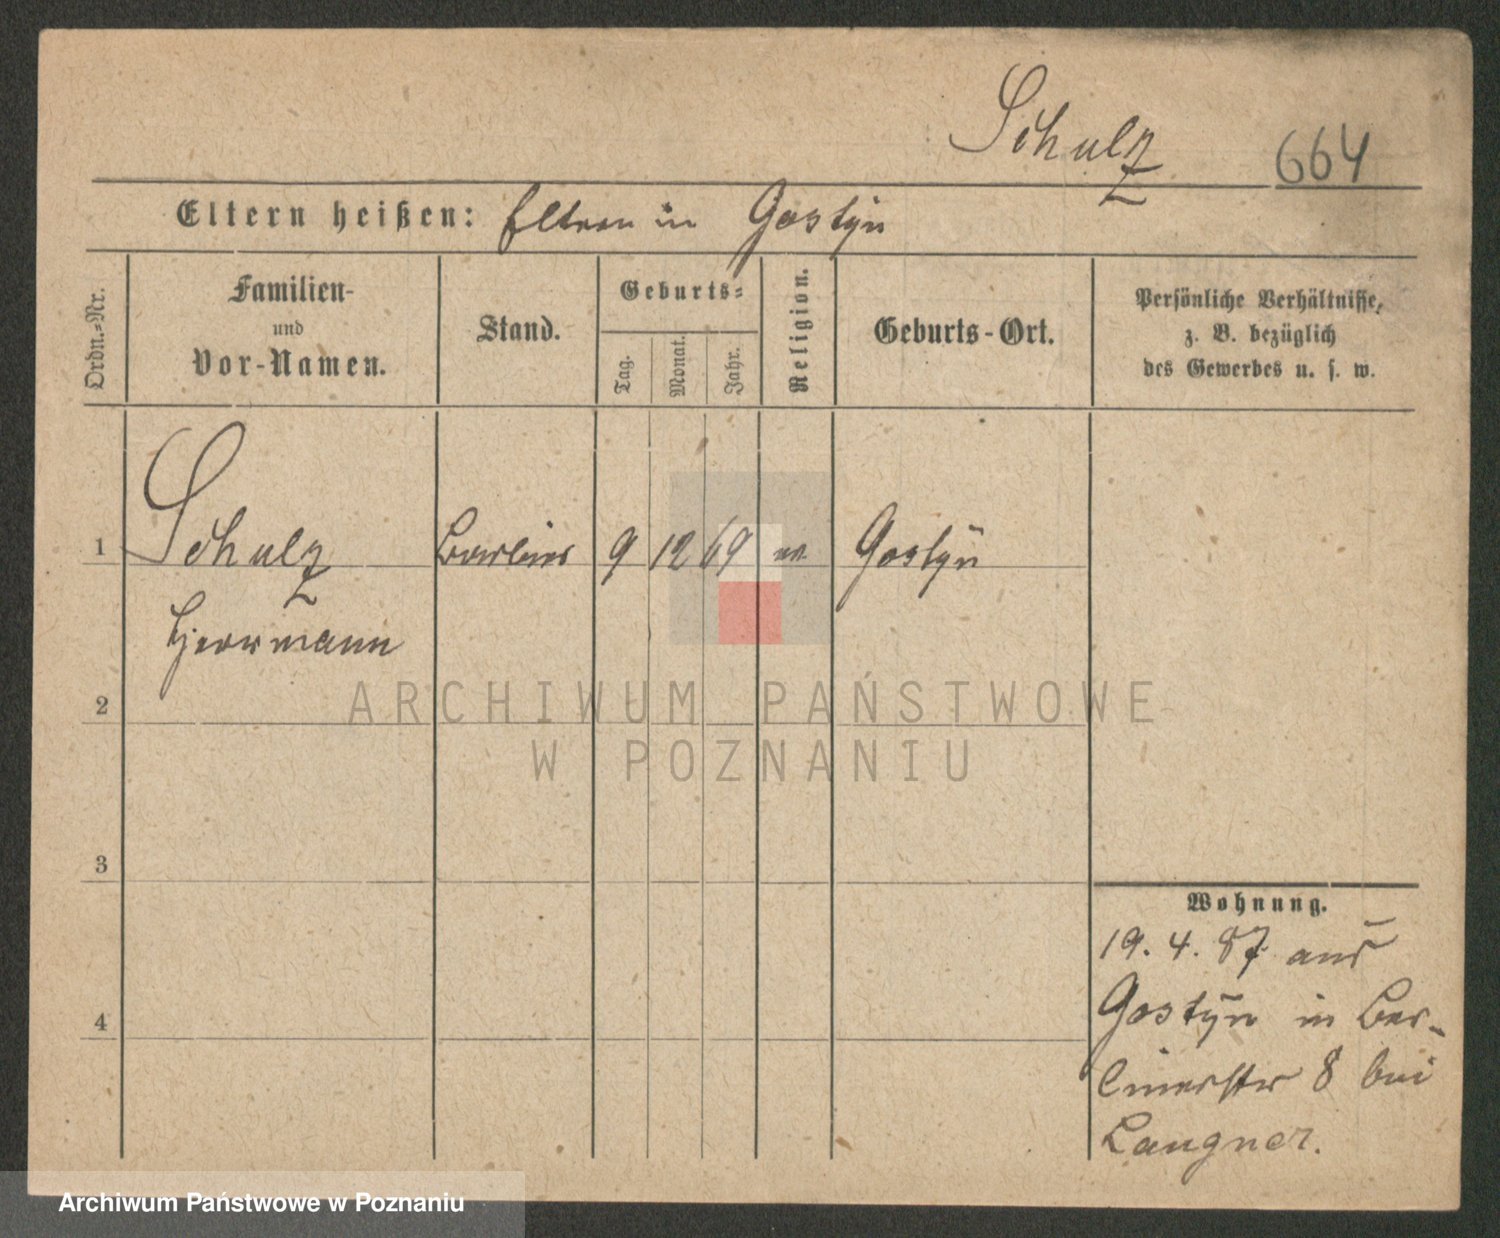 Schulz 664
Eltern heißen: Eltern in Gostÿn
Ordn.=Nr.
Familien-
und
Vor-Namen.
Stand.
Geburts=
Tag.
Monat.
Jahr.
Religion.
Geburts-Ort.
Persönliche Verhältnisse,
z. B. bezüglich
des Gewerbes u. s. w.
1 Schulz 9 12 69 Gostÿn
Herrmann
2
ARCHIWUM PAŃSTWOWE
W POZNANIU
3
Wohnung.
19. 4. 87 aus
Gostÿn in Ber-
4
linerstr 8 bei
Langner.
Archiwum Państwowe w Poznaniu